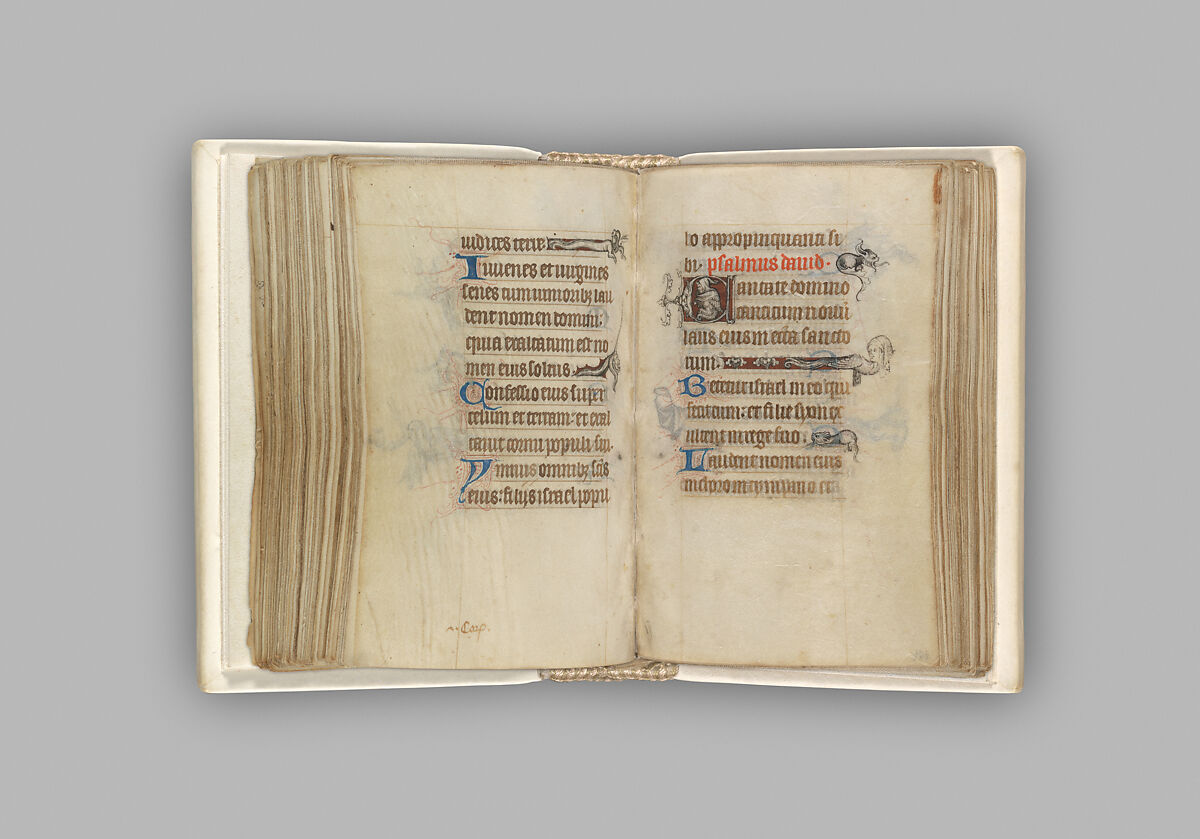 iudices terre
Iuuenes et uirgines
senes cum iunioribȝ lau
dent nomen domini:
quia exaltatum est no
men eius solius.
Confessio eius super
celum et terram: et exal
tauit cornu populi sui.
Ymnus omnibȝ scīs
eius: filijs israel popu
Corp.
lo appropinquanti si
bi. psalmus dauid.
Cantate domino
canticum nouū
laus eius in eccā sancto
rum.
Letetur israel in eo qui
fecit eum: et filie syon ex
ultent in rege suo.
Laudent nomen eius
in choro in tympano et